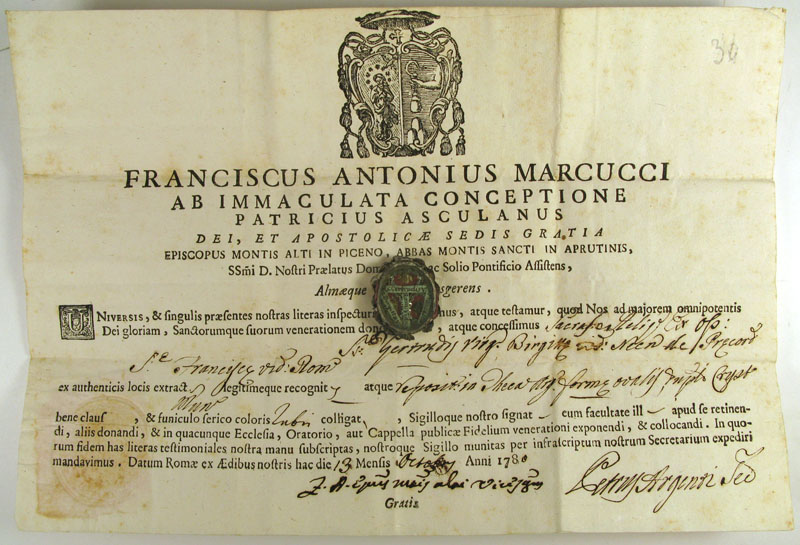 36
FRANCISCUS ANTONIUS MARCUCCI
AB IMMACULATA CONCEPTIONE
PATRICIUS ASCULANUS
DEI, ET APOSTOLICÆ SEDIS GRATIA
EPISCOPUS MONTIS ALTI IN PICENO, ABBAS MONTIS SANCTI IN APRUTINIS,
SSm̃i D. Nostri Prælatus Dom ac Solio Pontificio Assistens,
Almæque sgerens.
UNIVERSIS, & singulis præsentes nostras literas inspectur mus, atque testamur, quod Nos ad majorem omnipotentis
Dei gloriam, Sanctorumque suorum venerationem don , atque concessimus Sacras ex
Gertrudis Virg. Birgittæ vid.
Franciscæ vid: Rom
ex authenticis locis extract legitimeque recognit atque reposit in theca formæ ovalis Cryst
bene claus , & funiculo serico coloris rubri colligat , Sigilloque nostro signat cum facultate ill apud se retinen-
di, aliis donandi, & in quacunque Ecclesia, Oratorio, aut Cappella publicæ Fidelium venerationi exponendi, & collocandi. In quo-
rum fidem has literas testimoniales nostra manu subscriptas, nostroque Sigillo munitas per infrascriptum nostrum Secretarium expediri
mandavimus. Datum Romæ ex Ædibus nostris hac die 13 Mensis Octobris Anni 1780
Petrus Argenti Sec
Gratis